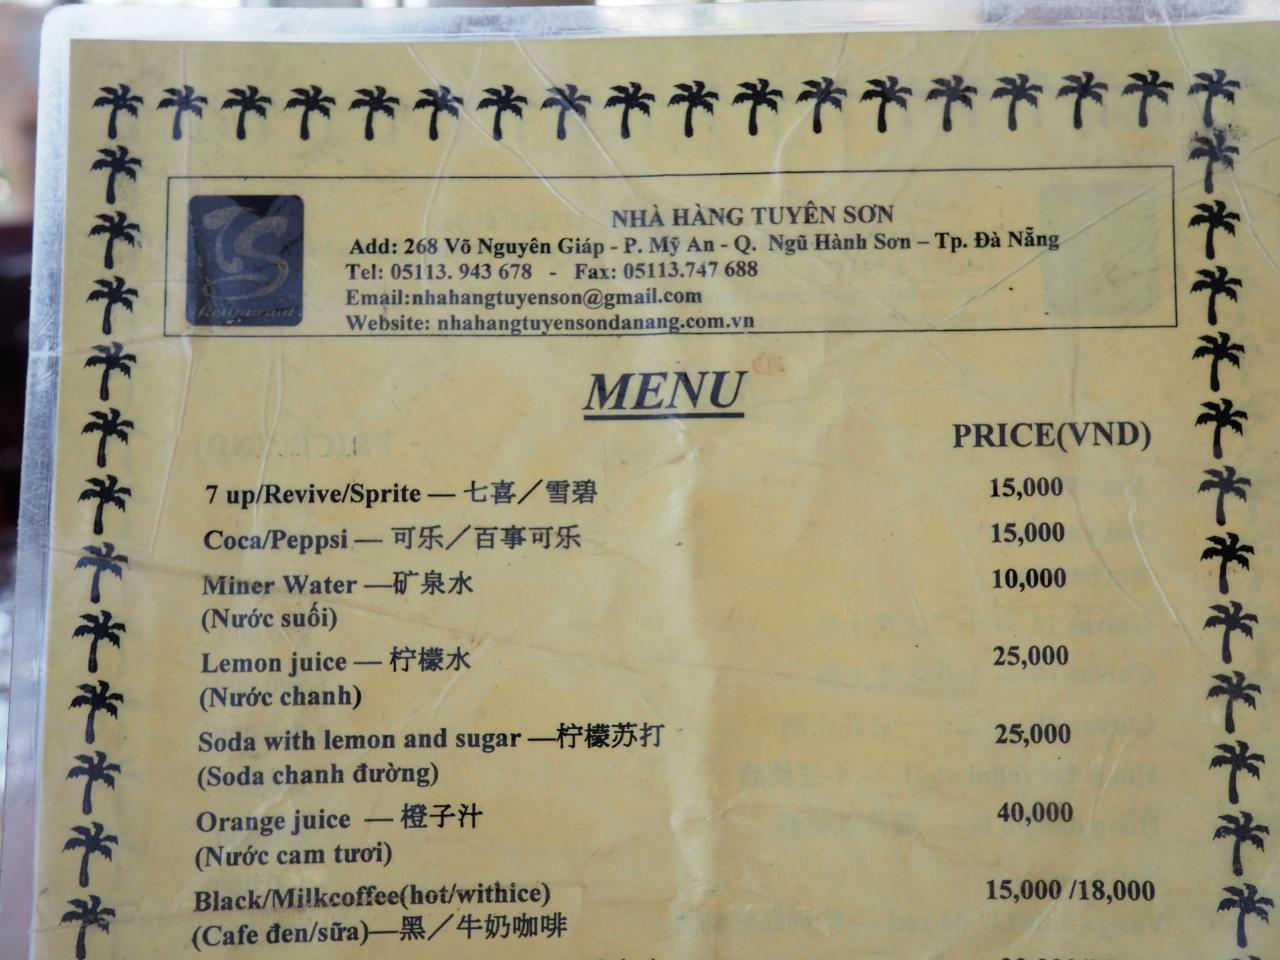 NHÀ HÀNG TUYÊN SƠN
Add: 268 Võ Nguyên Giáp - P. Mỹ An - Q. Ngũ Hành Sơn – Tp. Đà Nẵng
Tel: 05113. 943 678 - Fax: 05113.747 688
Email:nhahangtuyenson@gmail.com
Website: nhahangtuyensondanang.com.vn
TS
Restaurant
MENU
PRICE(VND)
7 up/Revive/Sprite — 七喜／雪碧 15,000
Coca/Peppsi — 可乐／百事可乐 15,000
Miner Water —矿泉水 10,000
(Nước suối)
Lemon juice — 柠檬水 25,000
(Nước chanh)
Soda with lemon and sugar —柠檬苏打 25,000
(Soda chanh đường)
Orange juice — 橙子汁 40,000
(Nước cam tươi)
Black/Milkcoffee(hot/withice) 15,000 /18,000
(Cafe đen/sữa)—黑／牛奶咖啡